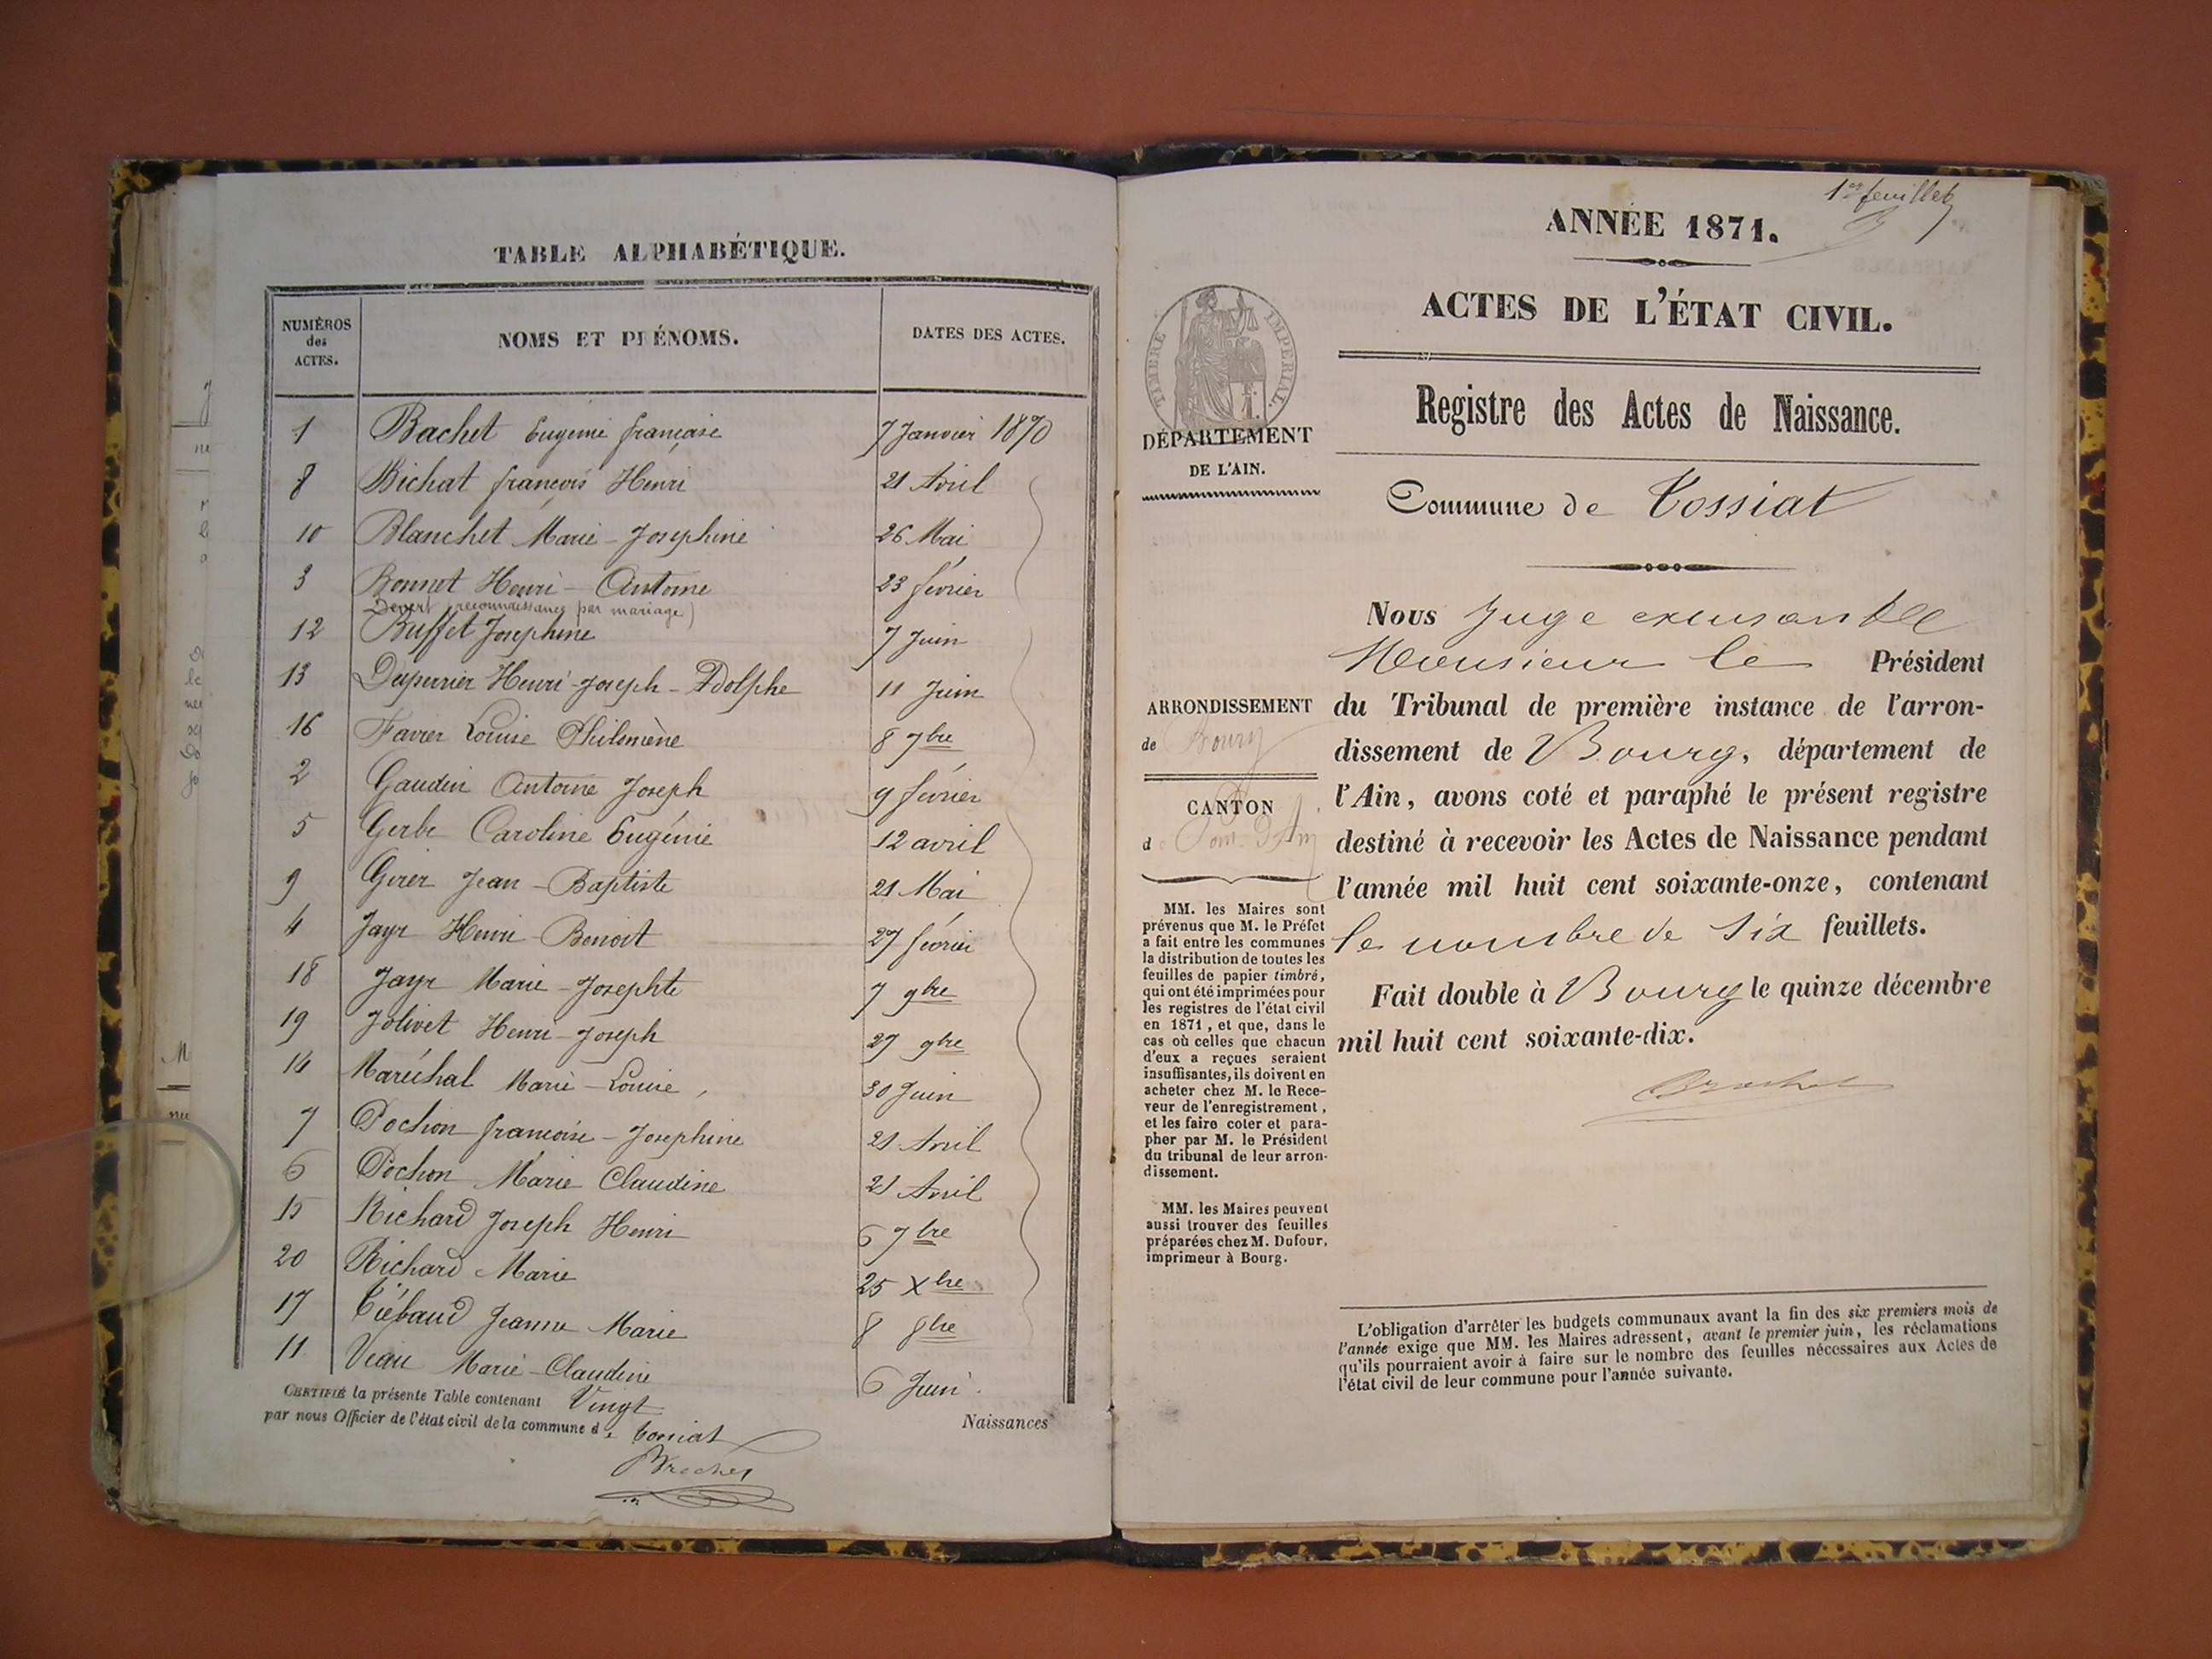 TABLE ALPHABÉTIQUE.
NUMÉROS des ACTES. NOMS ET PRÉNOMS. DATES DES ACTES.
1 Bachet Eugénie françoise 7 Janvier 1870
8 Bichat françois Henri 21 Avril
10 Blanchet Marie-Joséphine 26 Mai
3 Bonnet Henri-Antoine 23 février
Devert reconnaissance par mariage)
12 Buffet Joséphine 7 Juin
13 Duperrier Henri-Joseph-Adolphe 11 Juin
16 Favier Louise Philomène 8 7bre
2 Gaudin Antoine Joseph 9 février
5 Gerbe Caroline Eugénie 12 avril
9 Girer Jean-Baptiste 21 Mai
4 Jayr Henri Benoit 27 février
18 Jayr Marie-Josephte 7 9bre
19 Jolivet Henri-Joseph 27 9bre
14 Maréchal Marie-Louise 30 Juin
7 Pochon françoise-Joséphine 21 Avril
6 Pochon Marie Claudine 21 Avril
15 Richard Joseph Henri 6 7bre
20 Richard Marie 25 Xbre
17 Tiébaud Jeanne Marie 8 8bre
11 Viau Marie-Claudine 6 Juin
CERTIFIÉ la présente Table contenant Vingt Naissances
par nous Officier de l'état civil de la commune de Tossiat
Brochet
1er feuillet
ANNÉE 1871.
ACTES DE L'ÉTAT CIVIL.
Registre des Actes de Naissance.
Commune de Tossiat
TIMBRE IMPERIAL.
DÉPARTEMENT
DE L'AIN.
ARRONDISSEMENT
de Bourg
CANTON
de Pont d'Ain
MM. les Maires sont
prévenus que M. le Préfet
a fait entre les communes
la distribution de toutes les
feuilles de papier timbré,
qui ont été imprimées pour
les registres de l'état civil
en 1871, et que, dans le
cas où celles que chacun
d'eux a reçues seraient
insuffisantes, ils doivent en
acheter chez M. le Rece-
veur de l'enregistrement,
et les faire coter et para-
pher par M. le Président
du tribunal de leur arron-
dissement.
MM. les Maires peuvent
aussi trouver des feuilles
préparées chez M. Dufour,
imprimeur à Bourg.
Nous Juge
Monsieur le Président
du Tribunal de première instance de l'arron-
dissement de Bourg, département de
l'Ain, avons coté et paraphé le présent registre
destiné à recevoir les Actes de Naissance pendant
l'année mil huit cent soixante-onze, contenant
le nombre de six feuillets.
Fait double à Bourg le quinze décembre
mil huit cent soixante-dix.
L'obligation d'arrêter les budgets communaux avant la fin des six premiers mois de
l'année exige que MM. les Maires adressent, avant le premier juin, les réclamations
qu'ils pourraient avoir à faire sur le nombre des feuilles nécessaires aux Actes de
l'état civil de leur commune pour l'année suivante.